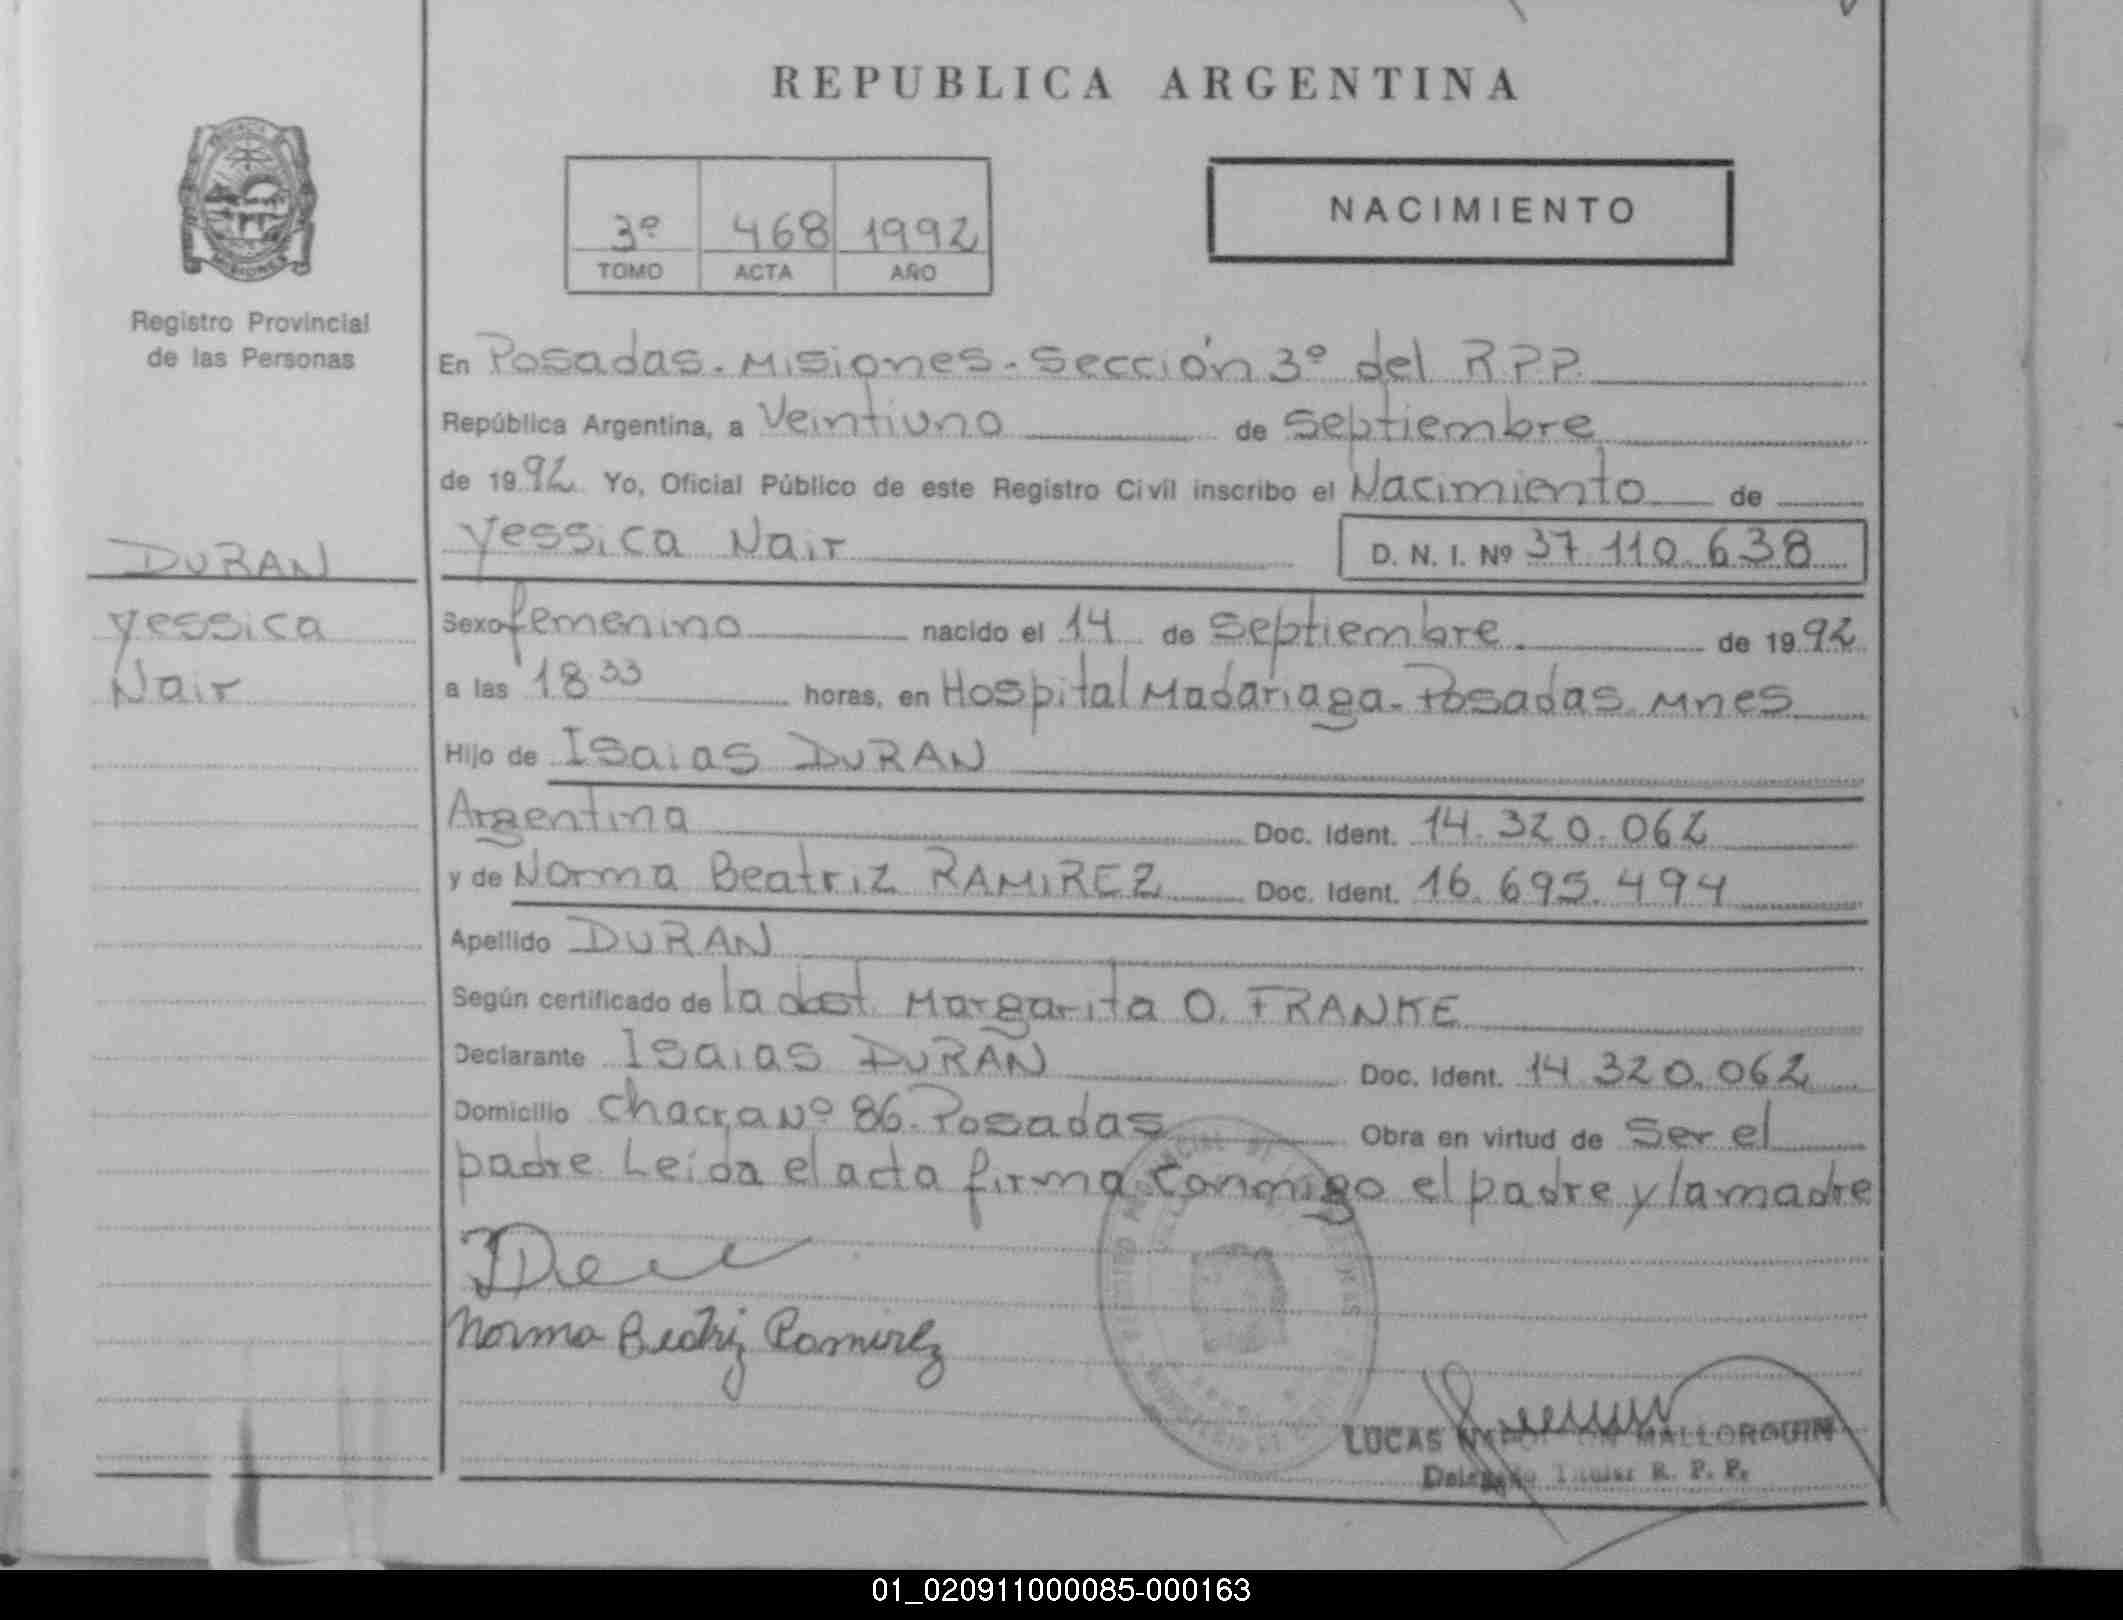 REPUBLICA ARGENTINA
3º 468 1992
TOMO ACTA AÑO
NACIMIENTO
MISIONES
Registro Provincial
de las Personas
En Posadas. Misiones. Sección 3º del R.P.P.
República Argentina, a Veintiuno de Septiembre
de 1992 Yo, Oficial Público de este Registro Civil inscribo el Nacimiento de
Yessica Nair D. N. I. Nº 37.110.638
DURAN
Yessica
Nair
Sexo femenino nacido el 14 de Septiembre de 1992
a las 18 33 horas, en Hospital Madariaga. Posadas. Mnes
Hijo de Isaias DURAN
Argentina Doc. Ident. 14.320.062
y de Norma Beatriz RAMIREZ Doc. Ident. 16.695.494
Apellido DURAN
Según certificado de la doct. Margarita O. FRANKE
Declarante Isaias DURAN Doc. Ident. 14.320.062
Domicilio Chacra Nº 86. Posadas Obra en virtud de Ser el
padre Leida el acta firma conmigo el padre y la madre
Norma Beatriz Ramirez
LUCAS MALLORQUIN
Delegado Titular R. P. P.
01_020911000085-000163